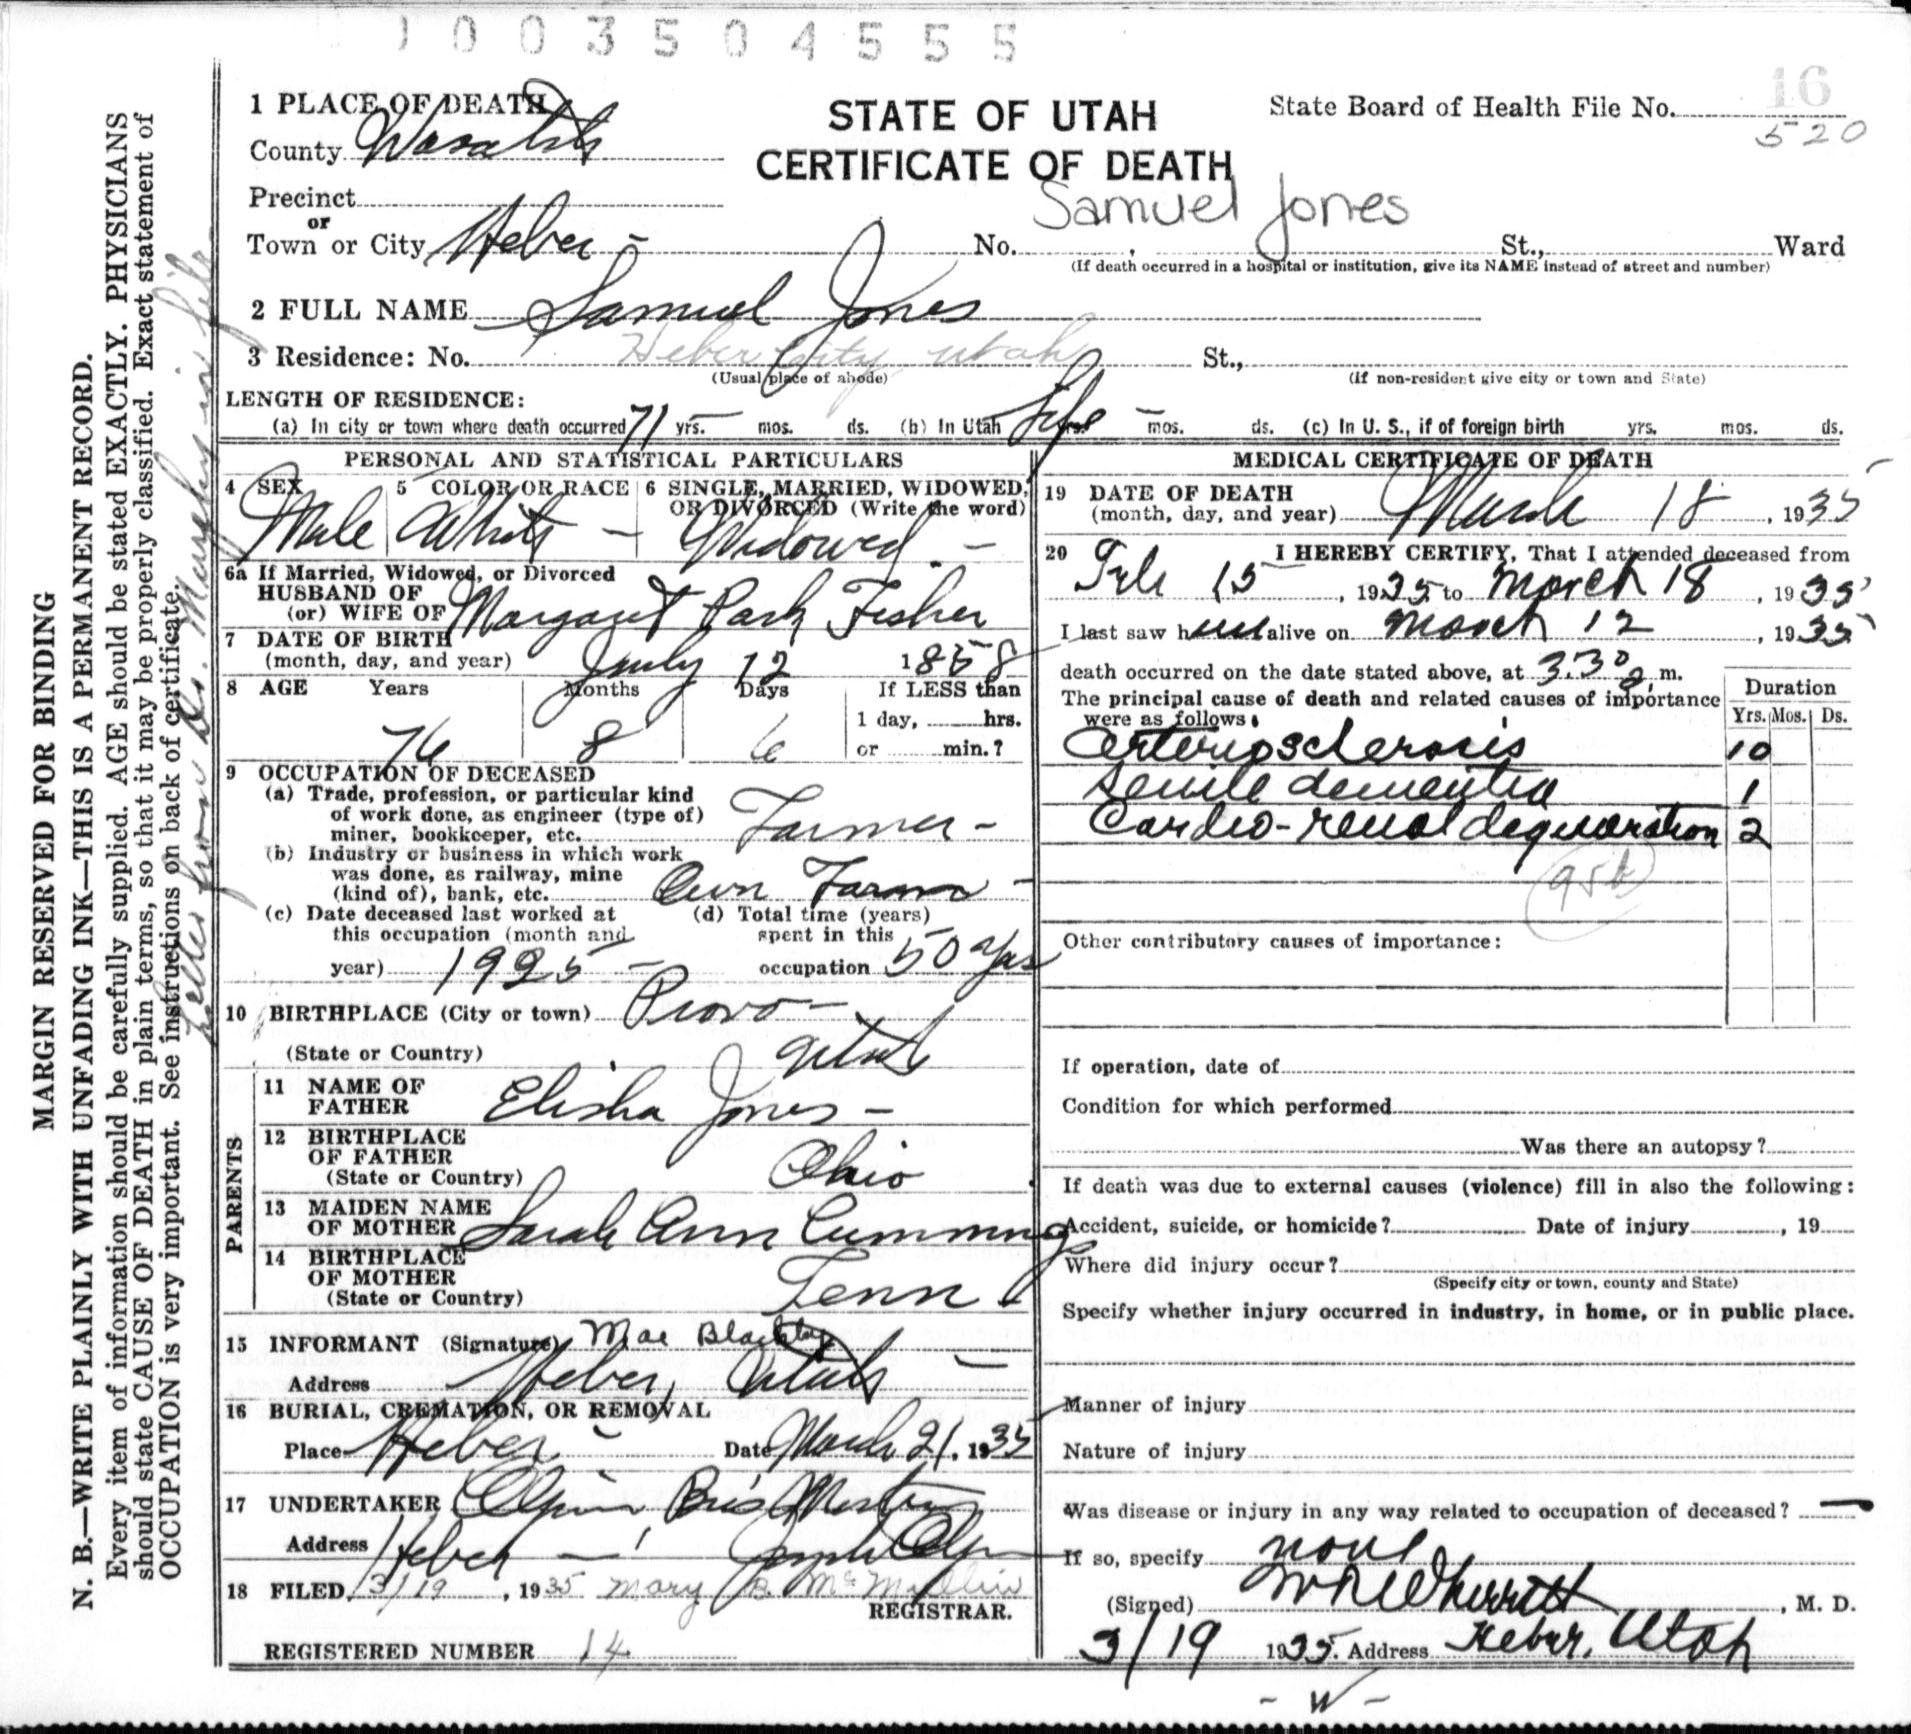 1003504555
16
520
1 PLACE OF DEATH
STATE OF UTAH
State Board of Health File No.
County Wasatch
CERTIFICATE OF DEATH
Precinct
Samuel Jones
or
Town or City Heber - No. , St., Ward
(If death occurred in a hospital or institution, give its NAME instead of street and number)
2 FULL NAME Samuel Jones
3 Residence: No. Heber City, Utah St.,
(Usual place of abode) (If non-resident give city or town and State)
LENGTH OF RESIDENCE:
(a) In city or town where death occurred 71 yrs. mos. ds. (b) In Utah Life yrs. - mos. ds. (c) In U. S., if of foreign birth yrs. mos. ds.
PERSONAL AND STATISTICAL PARTICULARS
4 SEX 5 COLOR OR RACE 6 SINGLE, MARRIED, WIDOWED,
OR DIVORCED (Write the word)
Male White - Widowed -
6a If Married, Widowed, or Divorced
HUSBAND OF
(or) WIFE OF Margaret Park Fisher
7 DATE OF BIRTH
(month, day, and year) July 12 1858
8 AGE Years Months Days If LESS than
1 day, hrs.
76 8 6 or min.?
9 OCCUPATION OF DECEASED
(a) Trade, profession, or particular kind
of work done, as engineer (type of)
miner, bookkeeper, etc. Farmer -
(b) Industry or business in which work
was done, as railway, mine
(kind of), bank, etc. Own Farm -
(c) Date deceased last worked at (d) Total time (years)
this occupation (month and spent in this
year) 1925 - occupation 50 yrs
10 BIRTHPLACE (City or town) Provo -
(State or Country) Utah
PARENTS
11 NAME OF
FATHER Elisha Jones -
12 BIRTHPLACE
OF FATHER
(State or Country) Ohio
13 MAIDEN NAME
OF MOTHER Sarah Ann Cummings
14 BIRTHPLACE
OF MOTHER
(State or Country) Tenn
15 INFORMANT (Signature) Mae
Address Heber, Utah -
16 BURIAL, CREMATION, OR REMOVAL
Place Heber - Date March 21, 1935
17 UNDERTAKER Olpin Bros Mortuary
Address Heber - Joseph Olpin
18 FILED, 3/19, 1935 Mary B. McMillin
REGISTRAR.
REGISTERED NUMBER 14
MEDICAL CERTIFICATE OF DEATH
19 DATE OF DEATH
(month, day, and year) March 18, 1935
20 I HEREBY CERTIFY, That I attended deceased from
Feb 15, 1935 to March 18, 1935
I last saw him alive on March 12, 1935
death occurred on the date stated above, at 3.30 a. m.
The principal cause of death and related causes of importance
were as follows:
Duration
Yrs. Mos. Ds.
Arteriosclerosis 10
Senile dementia 1
Cardio-renal degeneration 2
Other contributory causes of importance:
If operation, date of
Condition for which performed
Was there an autopsy?
If death was due to external causes (violence) fill in also the following:
Accident, suicide, or homicide? Date of injury , 19
Where did injury occur?
(Specify city or town, county and State)
Specify whether injury occurred in industry, in home, or in public place.
Manner of injury
Nature of injury
Was disease or injury in any way related to occupation of deceased? -
If so, specify none
(Signed) W R Wherritt, M. D.
3/19 1935. Address Heber, Utah
- W -
MARGIN RESERVED FOR BINDING
N. B.—WRITE PLAINLY WITH UNFADING INK—THIS IS A PERMANENT RECORD.
Every item of information should be carefully supplied. AGE should be stated EXACTLY. PHYSICIANS
should state CAUSE OF DEATH in plain terms, so that it may be properly classified. Exact statement of
OCCUPATION is very important. See instructions on back of certificate.
Letter from Dr. Murphy in file.